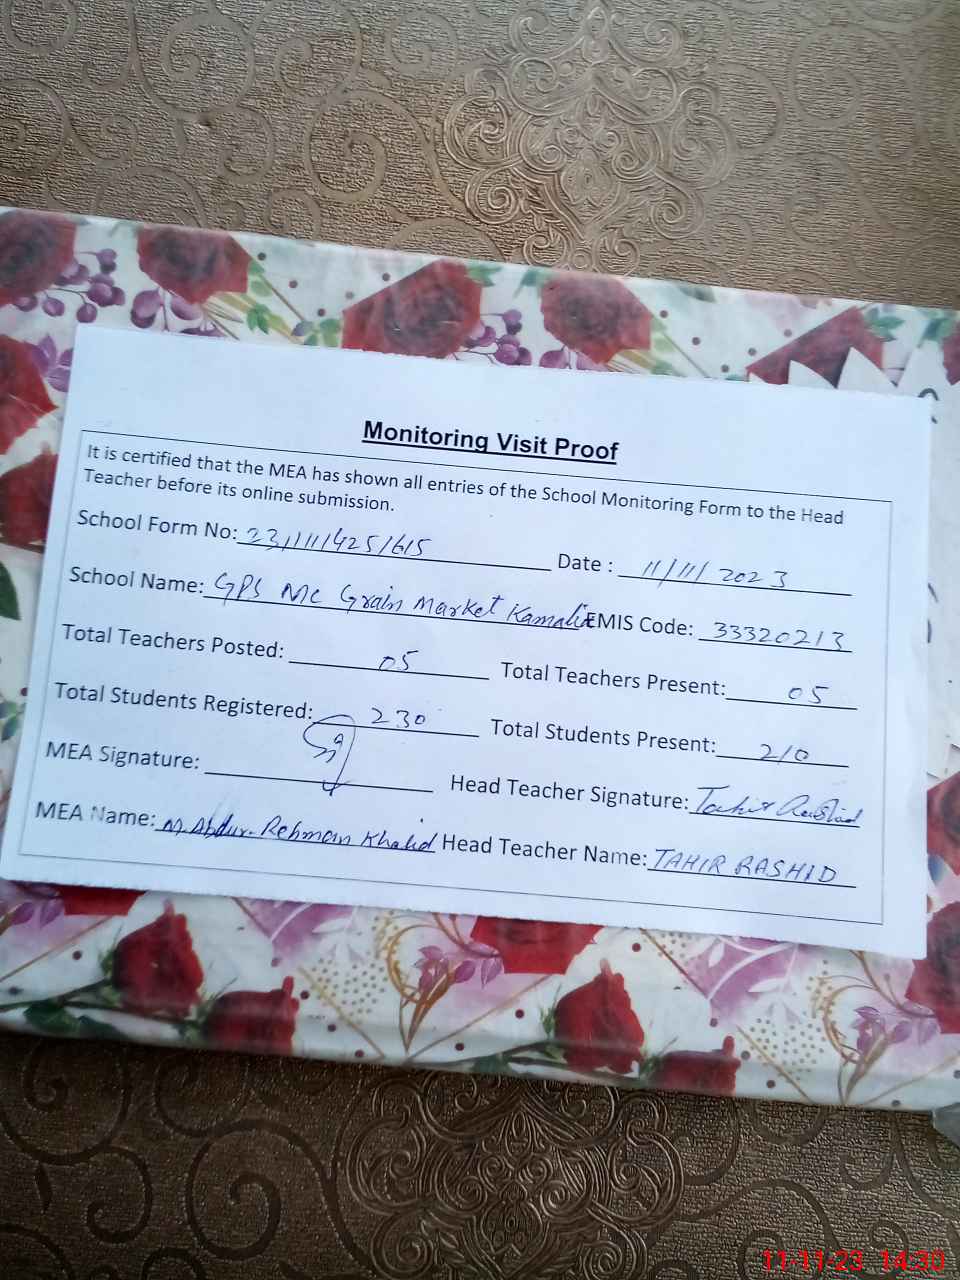 Monitoring Visit Proof
It is certified that the MEA has shown all entries of the School Monitoring Form to the Head
Teacher before its online submission.
School Form No: 23111114251615 Date : 11/11/2023
School Name: GPS Mc Grain Market Kamalia EMIS Code: 33320213
Total Teachers Posted: 05 Total Teachers Present: 05
Total Students Registered: 230 Total Students Present: 210
MEA Signature: Head Teacher Signature: Tahir Rashid
MEA Name: M. Abdur-Rehman Khalid Head Teacher Name: TAHIR RASHID
11-11-23 14:30